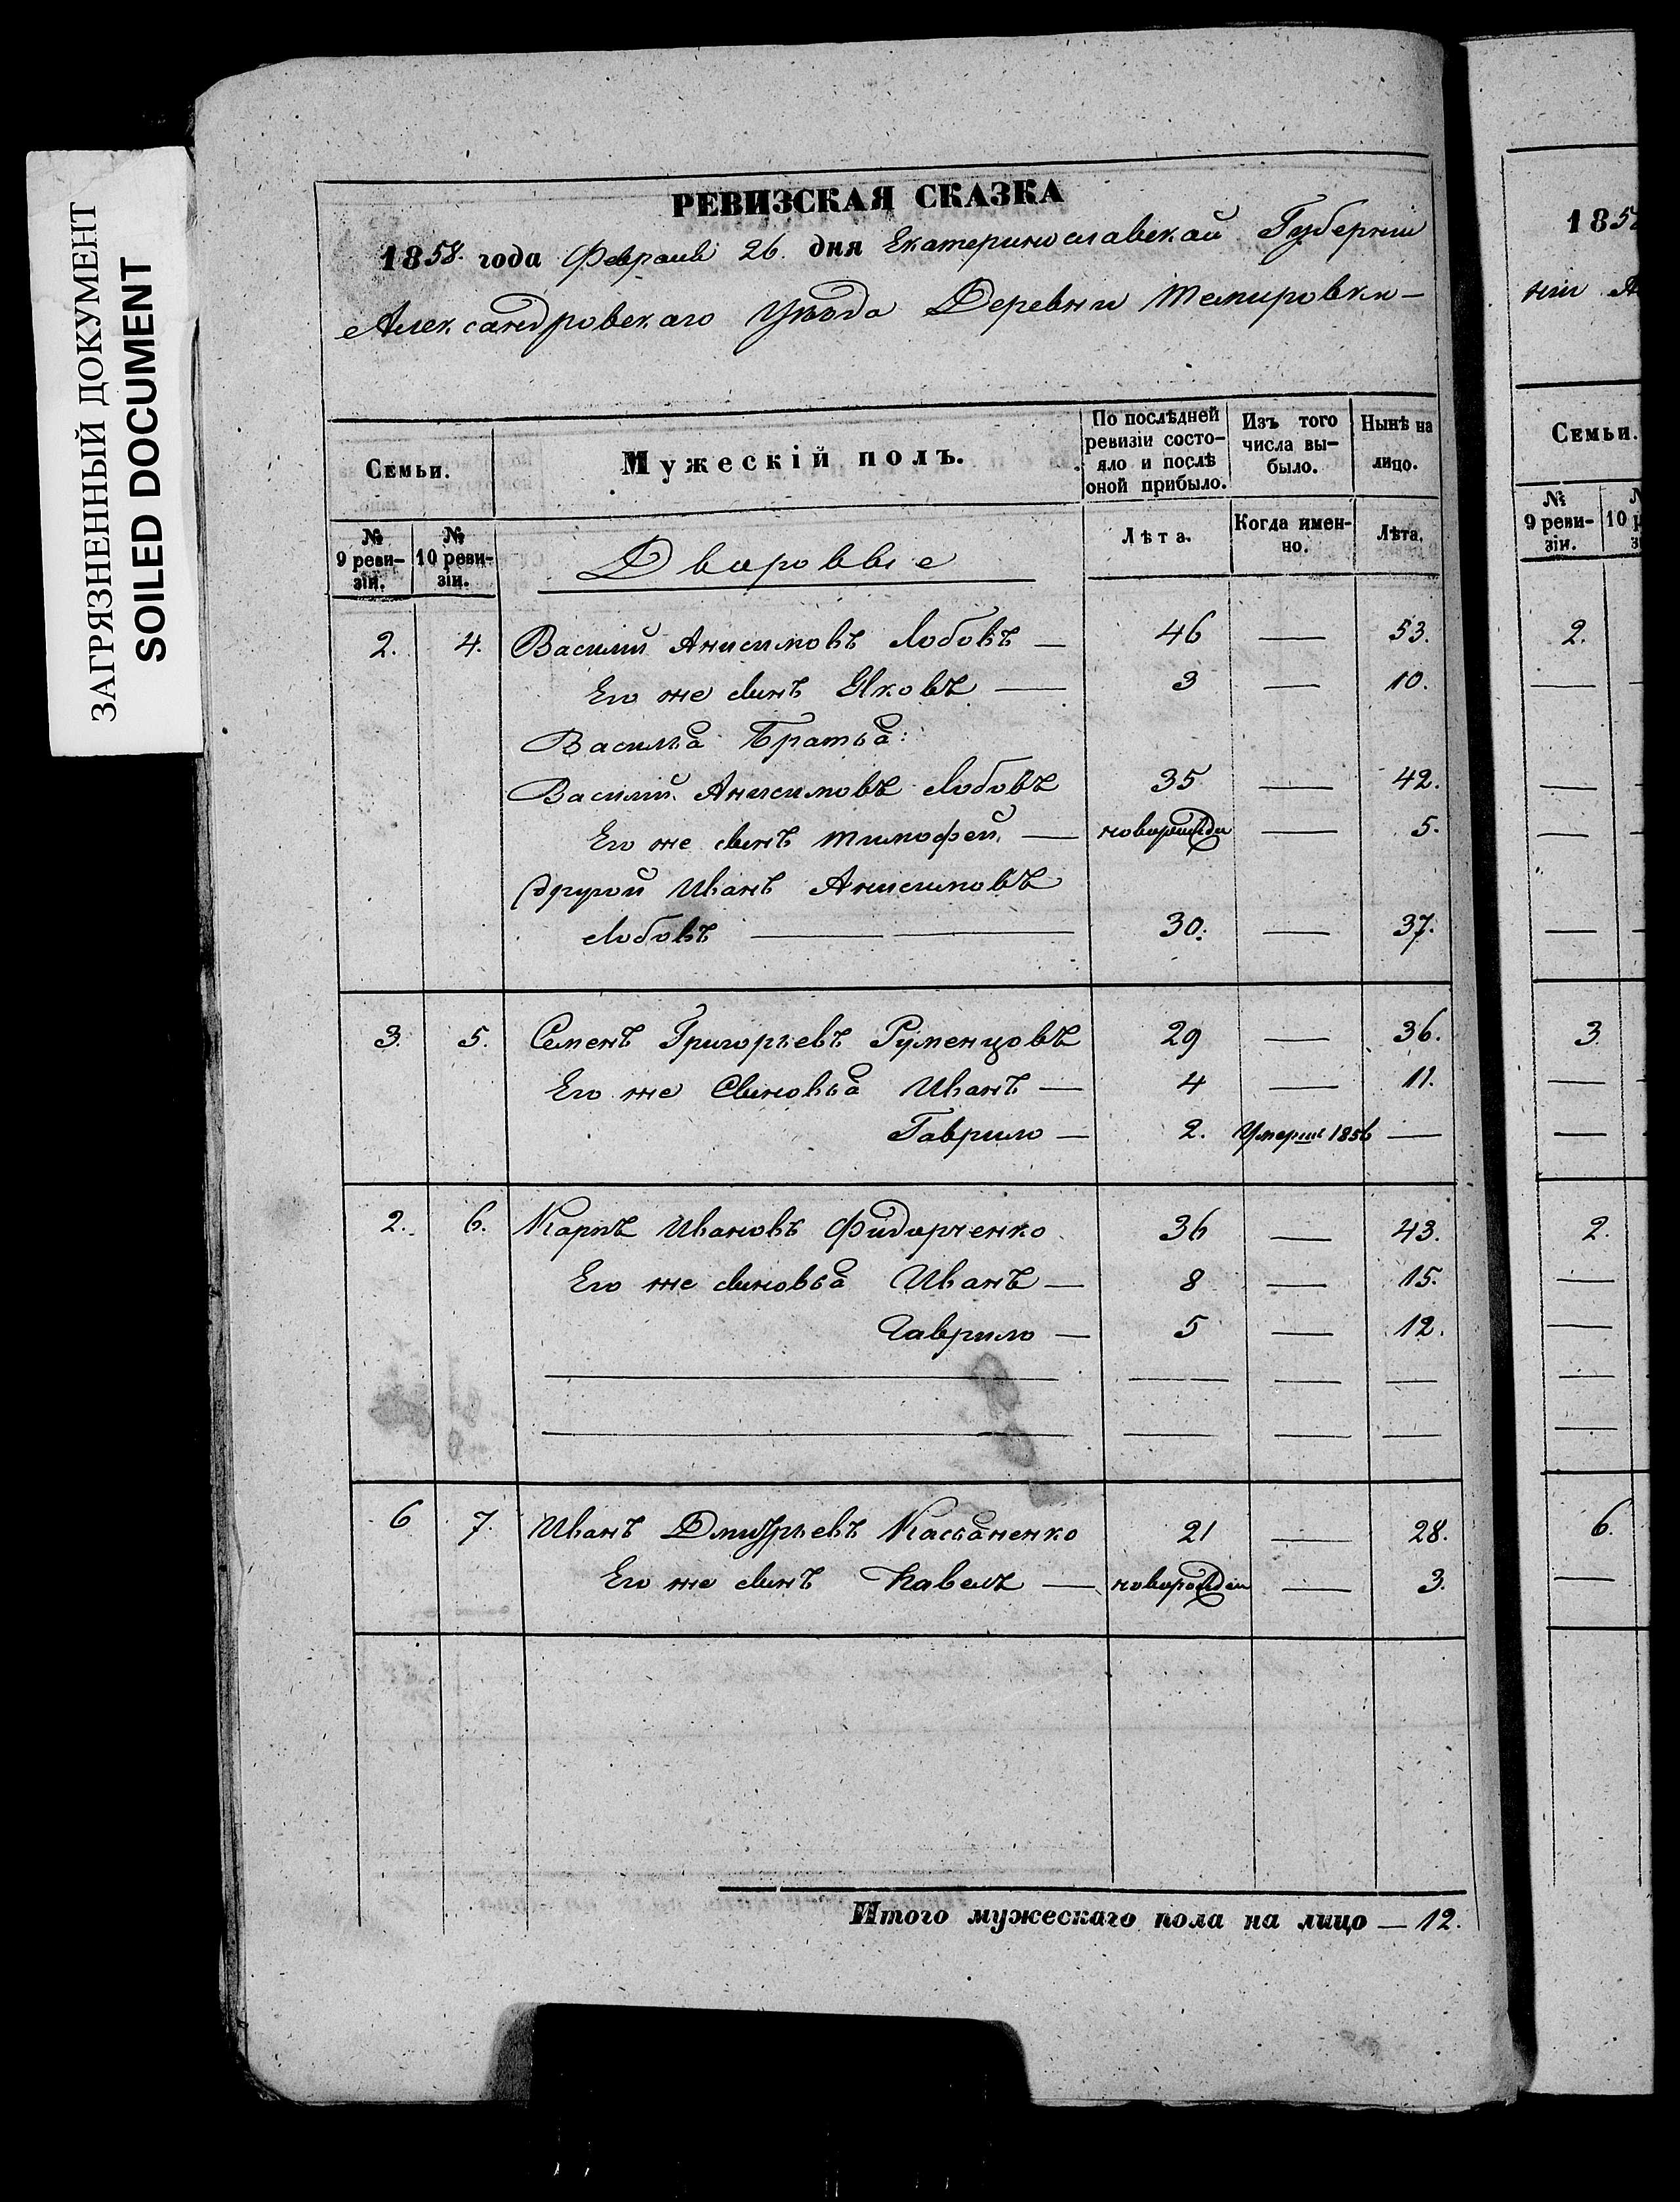 ЗАГРЯЗНЕННЫЙ ДОКУМЕНТ
SOILED DOCUMENT
РЕВИЗСКАЯ СКАЗКА
1858. года Февраля 26. дня Екатеринославской Губерніи
Александровскаго Уѣзда Деревни Темировки —
Семьи.
Мужескій полъ.
По послѣдней ревизіи состояло и послѣ оной прибыло.
Изъ того числа выбыло.
Нынѣ на лицо.
№ 9 ревизіи.
№ 10 ревизіи.
Дворовые
Лѣта.
Когда именно.
Лѣта.
2. 4. Василий Анисимовъ Лобовъ — 46 — 53.
Его же сынъ Яковъ — 3 — 10.
Василья Братья:
Василий Анисимовъ Лобовъ 35 — 42.
Его же сынъ Тимофей — — 5.
другой Иванъ Анисимовъ
Лобовъ — 30. — 37.
3. 5. Семенъ Григорьевъ Руменцовъ 29 — 36.
Его же Сыновья Иванъ — 4 — 11.
Гаврило — 2. Умеръ 1856 —
2. 6. Карпъ Ивановъ Фидорченко 36 — 43.
Его же сыновья Иванъ — 8 — 15.
Гаврило — 5 — 12.
6 7. Иванъ Дмитрьевъ Касьяненко 21 — 28.
Его же сынъ Павелъ — — 3.
Итого мужескаго пола на лицо — 12.
185
ніи
Семьи.
№ 9 ревизіи.
10
2.
3.
2.
6.